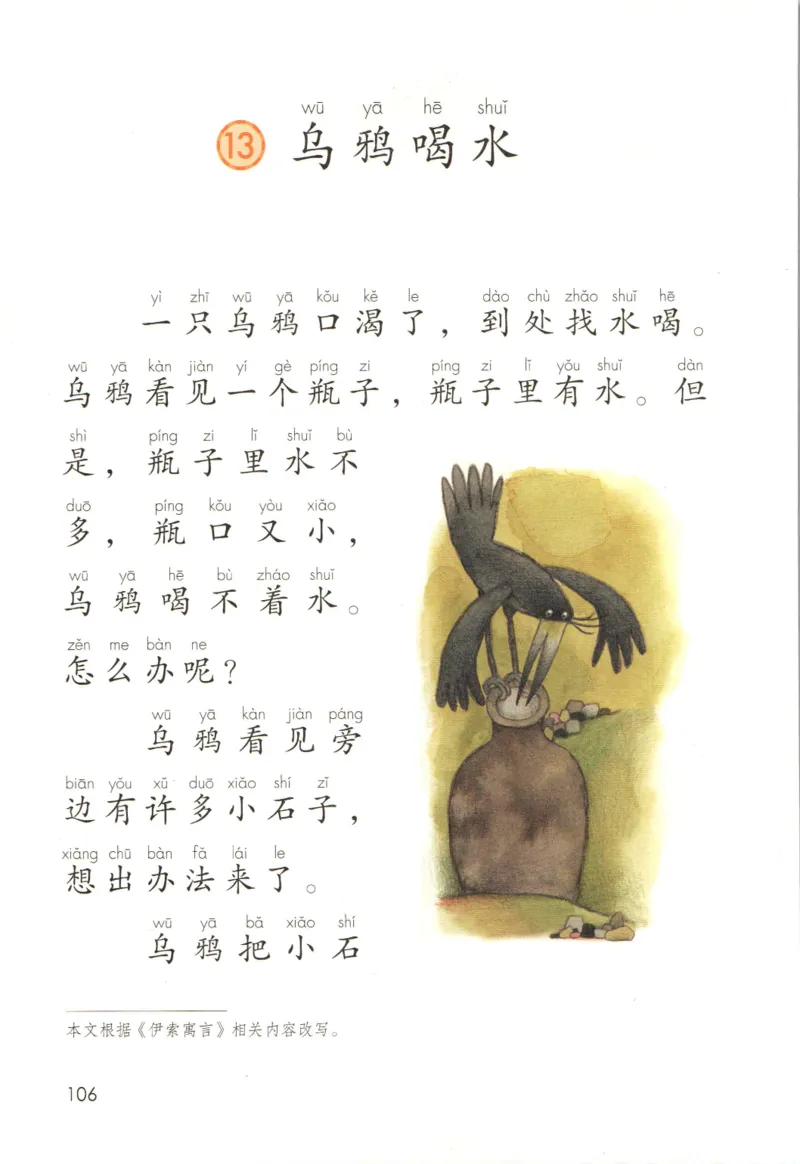 wū yā hē shuǐ
13 乌鸦喝水
yì zhī wū yā kǒu kě le dào chù zhǎo shuǐ hē
一只乌鸦口渴了，到处找水喝。
wū yā kàn jiàn yí gè píng zi píng zi lǐ yǒu shuǐ dàn
乌鸦看见一个瓶子，瓶子里有水。但
shì píng zi lǐ shuǐ bù
是，瓶子里水不
duō píng kǒu yòu xiǎo
多，瓶口又小，
wū yā hē bù zháo shuǐ
乌鸦喝不着水。
zěn me bàn ne
怎么办呢？
wū yā kàn jiàn páng
乌鸦看见旁
biān yǒu xǔ duō xiǎo shí zǐ
边有许多小石子，
xiǎng chū bàn fǎ lái le
想出办法来了。
wū yā bǎ xiǎo shí
乌鸦把小石
本文根据《伊索寓言》相关内容改写。
106